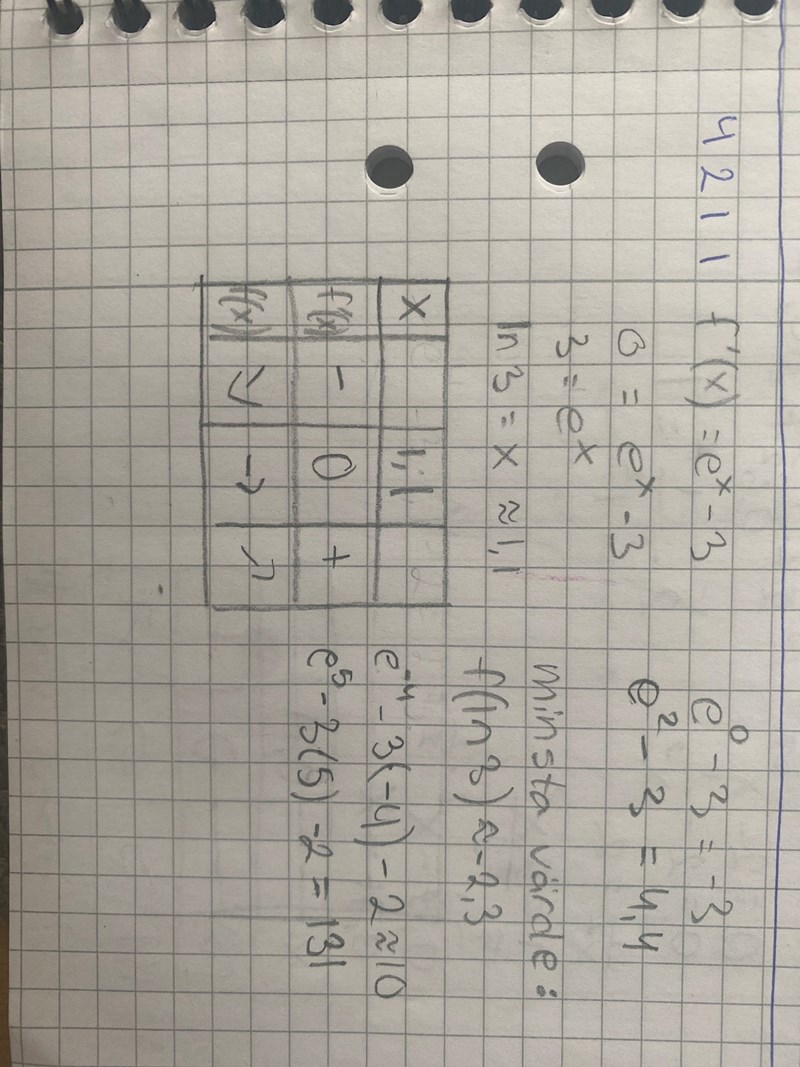 4211 f'(x) = e^x - 3
0 = e^x - 3
3 = e^x
ln 3 = x ≈ 1,1
x 1,1
f'(x) - 0 +
f(x) ↘ → ↗
e^0 - 3 = -3
e^2 - 3 = 4,4
minsta värde:
f(ln 3) ≈ -2,3
e^-4 - 3(-4) - 2 ≈ 10
e^5 - 3(5) - 2 = 131